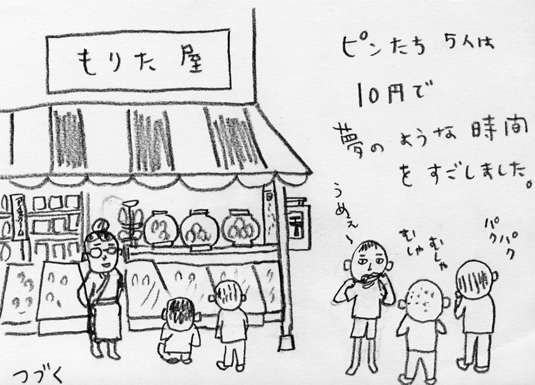 もりた屋
ピンたち 5人は
10円で
夢のような時間
をすごしました。
うめぇ〜
むしゃ
むしゃ
パク
パク
つづく